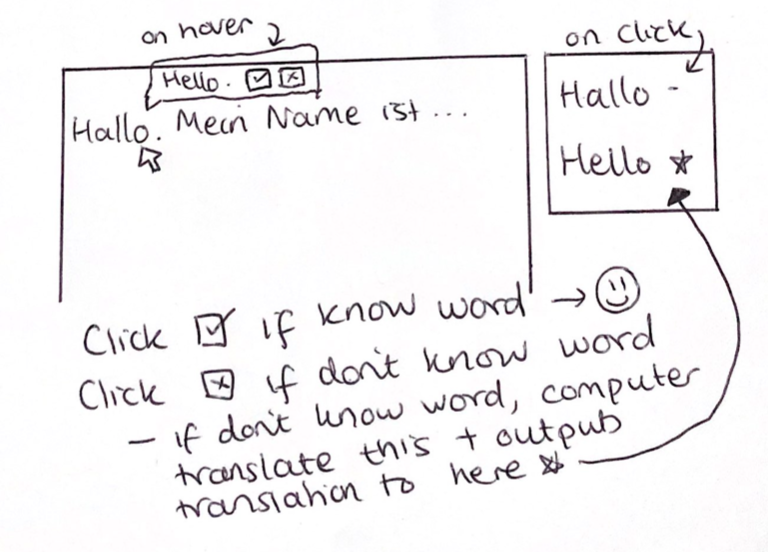 on hover
on click
Hello.
Hallo -
Hallo. Mein Name ist ...
Hello
Click if know word →
Click if don't know word
- if don't know word, computer
translate this + output
translation to here